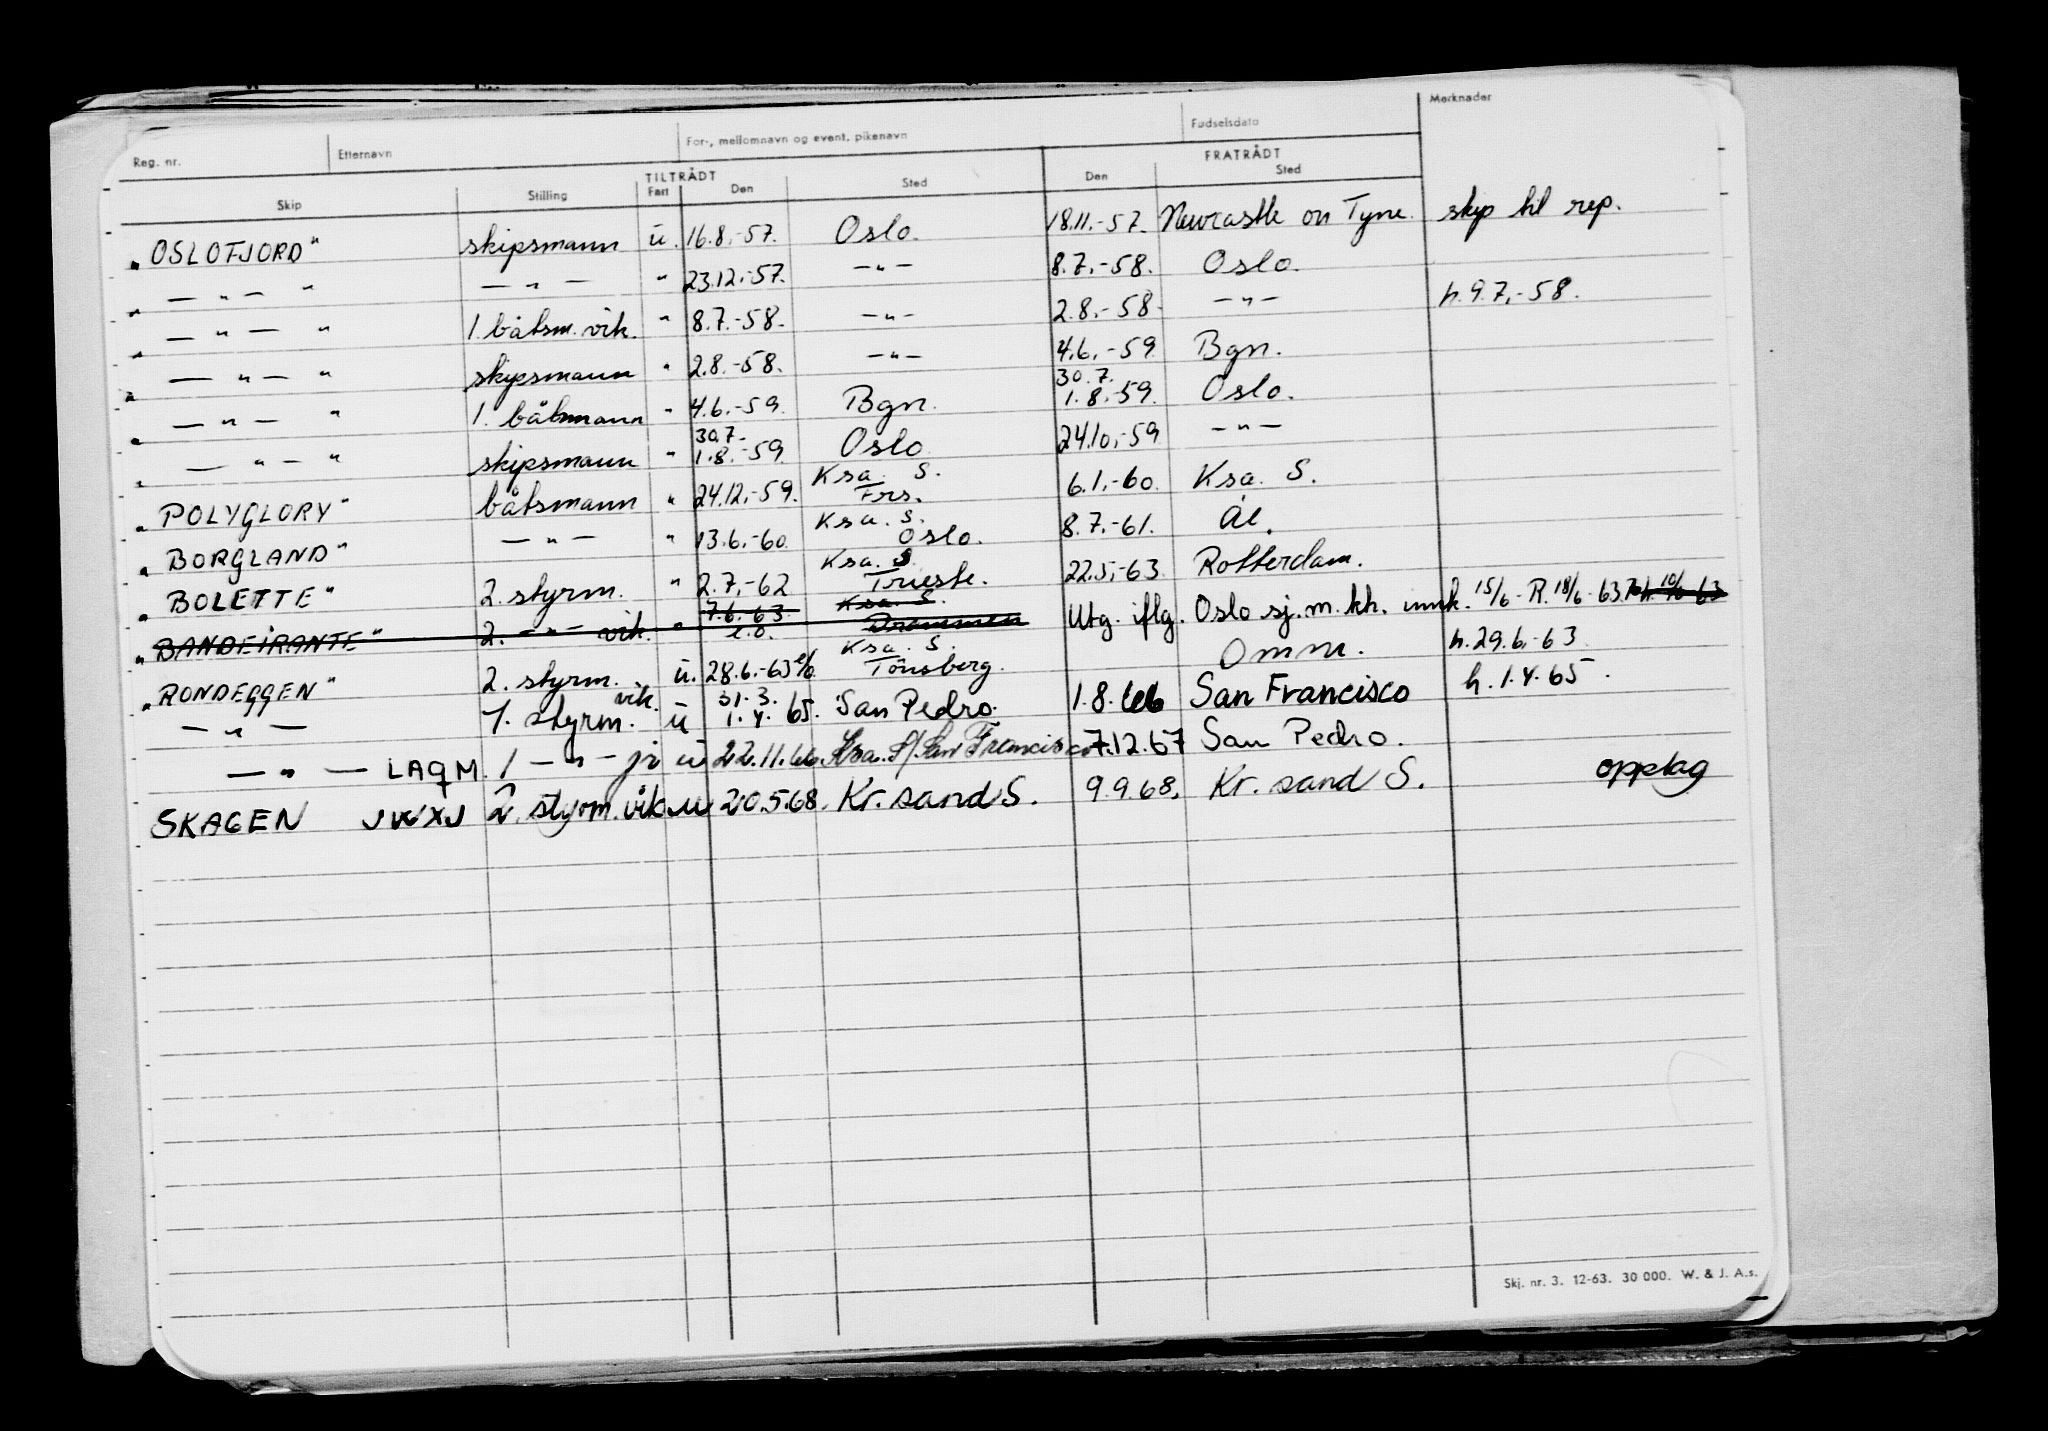 Reg. nr. Etternavn For-, mellomnavn og event. pikenavn Fødselsdato Merknader
TILTRÅDT FRATRÅDT
Skip Stilling Fart Den Sted Den Sted
"OSLOFJORD" skipsmann u. 16.8.-57. Oslo. 18.11.-57. Newcastle on Tyne. skip til rep.
" — " — " — " — " 23.12.-57. — " — 8.7.-58. Oslo.
" — " — " 1. båtsm. vik. " 8.7.-58. — " — 2.8.-58. — " — h. 9.7.-58.
" — " — " skipsmann " 2.8.-58. — " — 4.6.-59. Bgn.
" — " — " 1. båtsmann " 4.6.-59. Bgn. 30.7. 1.8.-59. Oslo.
" — " — " skipsmann " 30.7- 1.8.-59. Oslo 24.10.-59 — " —
"POLYGLORY" båtsmann " 24.12.-59. Ksa. S. Frs. 6.1.-60. Ksa. S.
"BORGLAND" — " — " 13.6.-60. Ksa. S. Oslo. 8.7.-61. Ål.
"BOLETTE" 2. styrm. " 2.7.-62 Ksa. S. Trieste. 22.5.-63. Rotterdam.
"BANDEIRANTE" 2. — " — vik. " 7.6.-63. e.o. Ksa. S. Drammen Utg. iflg. Oslo sj.m.kh. unnk. 15/6 - R. 18/6 - 63. h. 10/6 63
"RONDEGGEN" 2. styrm. u. 28.6.-63 e/o Ksa. S. Tönsberg. Omm. h. 29.6.-63
— " — 1. styrm. vik. u 31.3. 1.4. 65. San Pedro. 1.8.66 San Francisco h. 1.4.65.
— " — LAQM. 1 — " — jr u 22.11.66. Ksa. S/. San Francisco 7.12.67 San Pedro.
SKAGEN JWXJ 2. styrm. vik u 20.5.68. Kr. sand S. 9.9.68. Kr. sand S. opplag
Skj. nr. 3. 12-63. 30 000. W. & J. A.s.